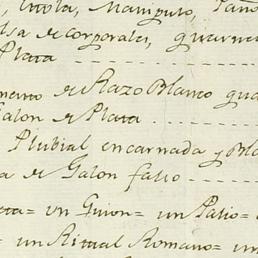 , Estola, Manipulo, Paño
lsa de corporales, guarne
Plata
mento de Razo Blanco gua
Galon de Plata.
Plubial encarnada y Bla
a de Galon falso
= un Guion = un Palio =
= un Ritual Romano = un